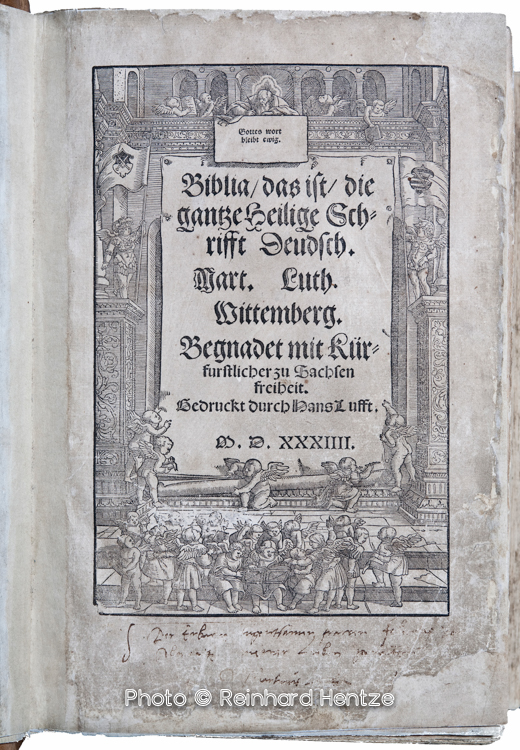 Gottes wort
bleibt ewig.
Biblia/ das ist/ die
gantze Heilige Sch-
rifft Deudsch.
Mart. Luth.
Wittemberg.
Begnadet mit Kür-
furstlicher zu Sachsen
freiheit.
Gedruckt durch Hans Lufft.
M. D. XXXIIII.
Photo © Reinhard Hentze